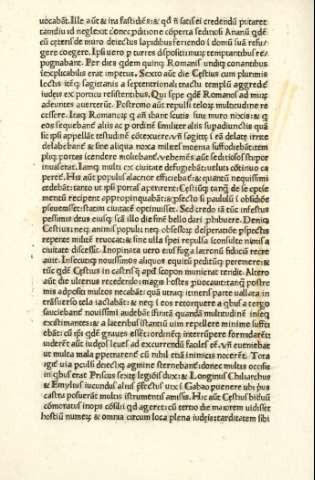 uocabāt. Ille aūt & ira fastidēs: & qd ñ satis ei credendū putaret
tandiu id neglexit donec pditione cōperta seditiosi Ananū qdē
cū ceteris de muro deiectos lapidibus feriendo i domū suā refu-
gere coegere. Ipsi uero p turres dispositi muro temptantibus re-
pugnabant. Per dies qdem quinq; Romanis undiq; conantibus
inexplicabilis erat impetus. Sexto aūt die Cestius cum plurimis
lectis itēq; sagittariis a septentrionali tractu templū aggredit̄
iudei ex porticu resistentibus. Qui sepe qdē Romanos ad murū
aduentes auerterūt. Postremo aūt repulsi telor̄ multitudine re
cessere. Itaq; Romanor̄ q añ ibant scutis suis muro nixis: & q
eos sequebant̄ aliis ac p ordinē similiter aliis supadiunctis quā
sic ipsi appellāt testudinē cōtexuere.
delabebant̄ & sine aliqua noxa milites moenia suffodiebāt: tem
pliq; portas icendere moliebant̄. uehemēs aūt seditiosos stupor
inuaserat. Iamq; multi ex ciuitate diffugiebāt: uelut cōtinuo ca
perēt̄. His aūt populus alacrior efficiebat̄: & quanto nequissimi
cedebāt: tanto ut ipsi portas apperirent: Cestiūq;
mentū recipent appropinquabāt: & pfecto si paululū i obsidiōe
pseuerasset: statim ciuitatē optinuisset. Sed credo iā tūc infestus
pessimis deus eiusq; scā illo die finē bello dari phibuere. Deniq;
Cestius: neq; animū populi: neq; obsessor̄ desperatiōe pspectis
repente milites reuocat: & sine ulla spei repulsa iconsulte nimis a
ciuitate discessit. Inopinata uero eius fuga latronū fiducia recre
auit. Insecutiq; nouissimos aliquot equitū peditūq; peremere: &
tūc qdē Cestius in castris q apd scopon munierat tendit. Altero
aūt die ulterius recedendo: magis hostes puocauit:
mis adpositi multos necabāt: quā utraq; itineris parte uallata in
trāsuerso tela iactabāt: & neq; i eos recorquere a qbus a tergo
sauciebant̄ nouissimi audebāt: infinitā quandā multitudinē inseq
existimantes: & a lateribus istantiū uim repellere minime suffici
ebāt: cū ipsi qdē graues essēt: ordinēq; interrūpere formidarēt:
uiderēt aūt iudeos leues ad excurrendū faciles eē. Vñ eueniebat
ut multa mala ppeterent̄ cū nihil etiā inimicis nocerēt. Tota
igit̄ uia pculsi deiectiq; agmine sternebant̄: donec multis occisis
in qbus erat Priscus sextę legiōis dux: & Longinus Chiliarchus
& Emylius iucundus alius pfectus uix i Gabao puenere ubi prius
castra posuerāt multis istrumentis amissis. Hic aūt Cestius biduū
cōmoratus inops cōsilii qd ageret: cū tertio die maiorem uidisset
hostiū numer̄ & omnia circum loca plena iudeis: tarditatem sibi